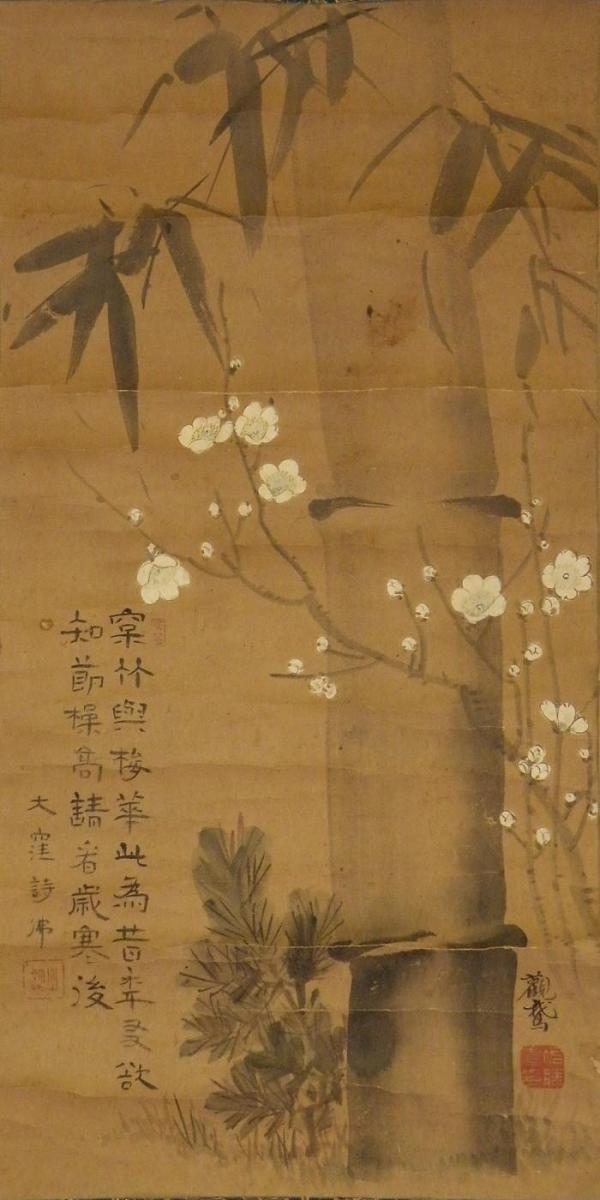 㮤竹與梅華此為昔年友欲
知節操高請看歲寒後
大窪詩佛
觀鵞